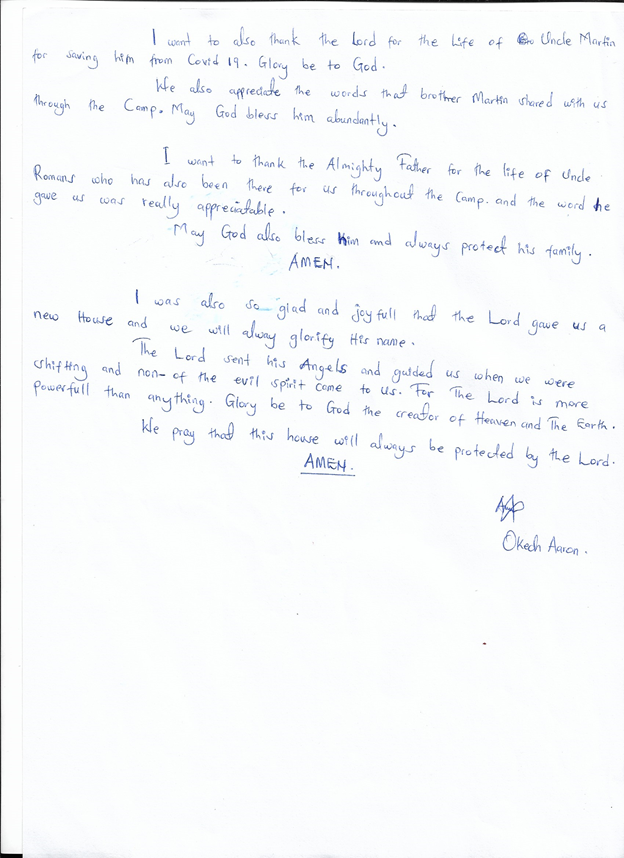 I want to also thank the Lord for the Life of Uncle Martin
for saving him from Covid 19. Glory be to God.
We also appreciate the words that brother Martin shared with us
through the Camp. May God bless him abundantly.
I want to thank the Almighty Father for the life of Uncle
Romans who has also been there for us throughout the Camp. and the word he
gave us was really appreciatable.
May God also bless him and always protect his family.
AMEN.
I was also so glad and joyfull that the Lord gave us a
new House and we will alway glorify His name.
The Lord sent his Angels and guided us when we were
shifting and non- of the evil spirit came to us. For The Lord is more
powerfull than anything. Glory be to God the creator of Heaven and The Earth.
We pray that this house will always be protected by the Lord.
AMEN.
Okech Aaron.